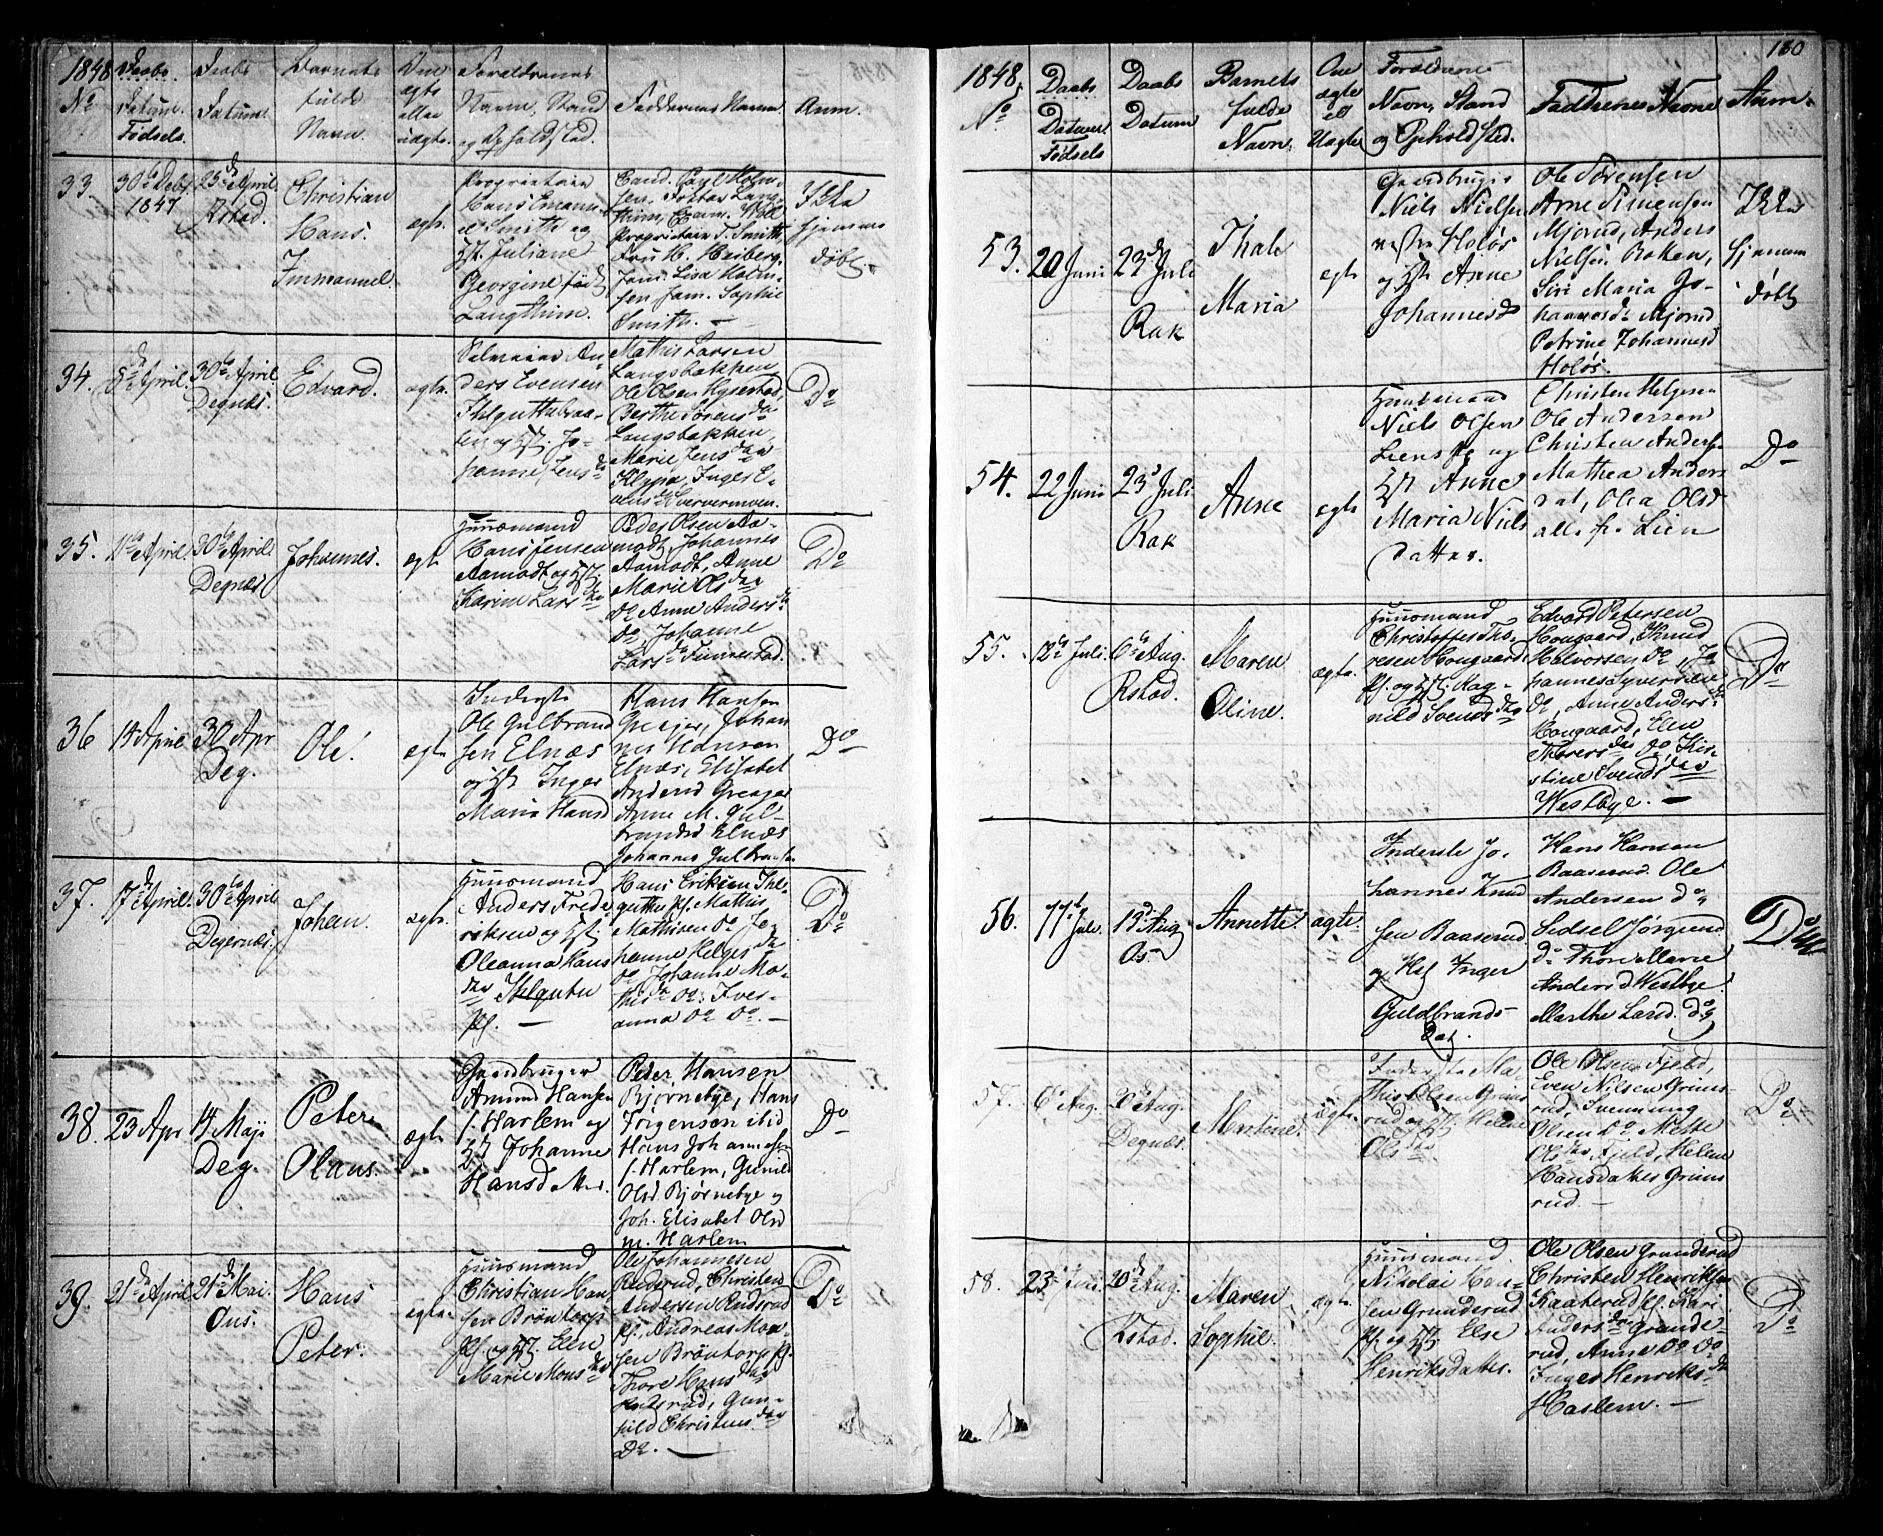 1848.
No
Fødsels
Datum.
Daabs
Datum.
Barnets
fulde
Navn.
Om
ægte
eller
uægte.
Forældrenes
Navn, Stand
og Opholdsted.
Faddernes Navne.
Anm.
33.
30te Debr
1847
23de April
Rstad.
Christian
Hans
Immanuel
ægte.
Proprietair
Hans Emanu-
el Smith og
Hst. Juliane
Georgine født
Langthim.
Cand. Paul Holm-
sen,
Proprietair T. Smith,
Fru H. Heiberg,
Jom. Lisa Holm-
sen Jom. Sophie
Smith. —
Ikke
hjemme
døbt.
34.
5te April
30te April
Degnæs.
Edvard.
ægte.
Anders Evensen
og Hst. Jo-
hanne Jensda
Mathis Larsen
Langsbakken
Ole Olsen
Berthe Sørensdar
Langsbakken,
Marie Jensdar
Klypa, Inger E-
Do
35.
11te April
30te April
Degnæs
Johannes.
ægte
Huusmand
Hans Jensen
Aamodt og Hst.
Karine Larsda
Peder Olsen Aa-
modt, Johannes
Aamodt, Anne
Marie Olsdar
Do Anne Andersda
Do, Johanne
Larsda
Do
36
14 April
30 Apr
Deg.
Ole.
ægte
Inderste
Ole Gulbrand
sen Elnæs
og Hst Inger
Marie Hansd
Hans Hansen
Greager, Johan
nes Hansen
Elnæs, Elisabet
Andersd Greager
Anne M. Gul-
brandsd Elnæs
Johannes Gulbransen
Do
37.
17de April
30te April
Degernæs.
Johan.
ægte.
Huusmand
Anders Frede
riksen og Hst.
Oleanna Hans
dar
Hans Eriksen
Mathis
Mathisen Do Jo-
hanne Helgesda
Do Johanne Ma-
thisda Do, Iver-
anna Do Do. —
Do
38.
23 Apr
14 Maji
Deg.
Peter
Olaus.
ægte
Gaardbruger
Amund Hansen
l. Harlem og
Hst Johanne
Hansdatter.
Peter Hansen
Bjørnebye, Hans
Jørgensen ibid
Hans Johannesen
l. Harlem, Gunild
Olsd Bjørnebye og
Joh. Elisabet Olsd
m. Harlem
Do
39.
21de April
21de Mai.
Ous.
Hans
Peter.
ægte.
Huusmand
Christian Han
sen Brøntorp
Pl. og Hst. Elen
Marie Monsdar
Ole Johannesen
Rudsrud, Christen
Andersen Rudsrud
Pl., Andreas Mon-
sen Brøntorp pl.
Thore Hansdar
Rudsrud, Gun-
hild Christensdar
Do. —
Do
180
1848.
No
Fødsels
Datum
Daabs
Datum
Barnets
fulde
Navn.
Om
ægte
ell
Uægte
Forældrenes
Navn, Stand
og Opholdsted.
Faddernes Navne
Anm.
53.
20 Juni
23d Juli
Rak
Thale
Maria
ægte
Gaardbruger
Niels Nielsen
vestre Holøs
og Hst Anne
Johannesd
Ole Sørensen
Arne Simensen
Mjorud, Anders
Nielsen Baken,
Siri Maria Jo-
hannesd Mjorud
Petrine Johannesd
Holøs.
Ikke
hjemme
døbt
54.
22 Juni
23d Juli
Rak
Anne
ægte
Huusmand
Niels Olsen
Liens pl. og
Hst Anne
Maria Niels
datter.
Christen Helgesen
Ole Andersen
Christen Anders
Mathea Anders
dat, Olia Olsd
alle fr. Lien
Do
55.
12te Juli.
6te Aug.
Rstad.
Maren
Oline.
ægte.
Huusmand
Christoffer Tho-
resen Hougaard
Pl. og Hst. Rag-
nild Svendsdar
Edvard Petersen
Hougaard, Knud
Halvorsen Do, Jo
hannes Syversen
Do, Anne Andersda
Hougaard, Elen
Thoresdar Do Kir-
stine Svendsdar
Westbye. —
Do
56.
17d Juli.
13d Aug
Os
Annette.
ægte.
Inderste Jo-
hannes Knud
sen Baaserud
og Hst Inger
Guldbrands-
Dat.
Hans Hansen
Baaserud. Ole
Andersen do,
Sidsel Jørgensd
do Thore Marie
Andersd Westbye.
Marthe Larsd. do
Do
57.
6te Aug.
20de Aug.
Degnæs.
Martine.
ægte.
Inderste Ma
this Olsen Grims
rud og Hst Helene
Olsdar
Ole Olsen Fjeld,
Even Nilsen Grims
rud, Svennung
Olsen Do Mette
Olsdar Fjeld, Helene
Hansdatter Grims
rud. —
Do
58.
23 Juli
20de Aug.
Rstad.
Maren
Sophie.
ægte.
Huusmand
Nikolai Han-
sen Grunderud
Pl. og Hst Else
Henriksdatter.
Ole Olsen Grunderud
Christen Henriksen
Kaaterud Pl. Kari
Andersdar Grunde-
rud, Anne Do Do
Inger Henriksda
Harlem. —
Do